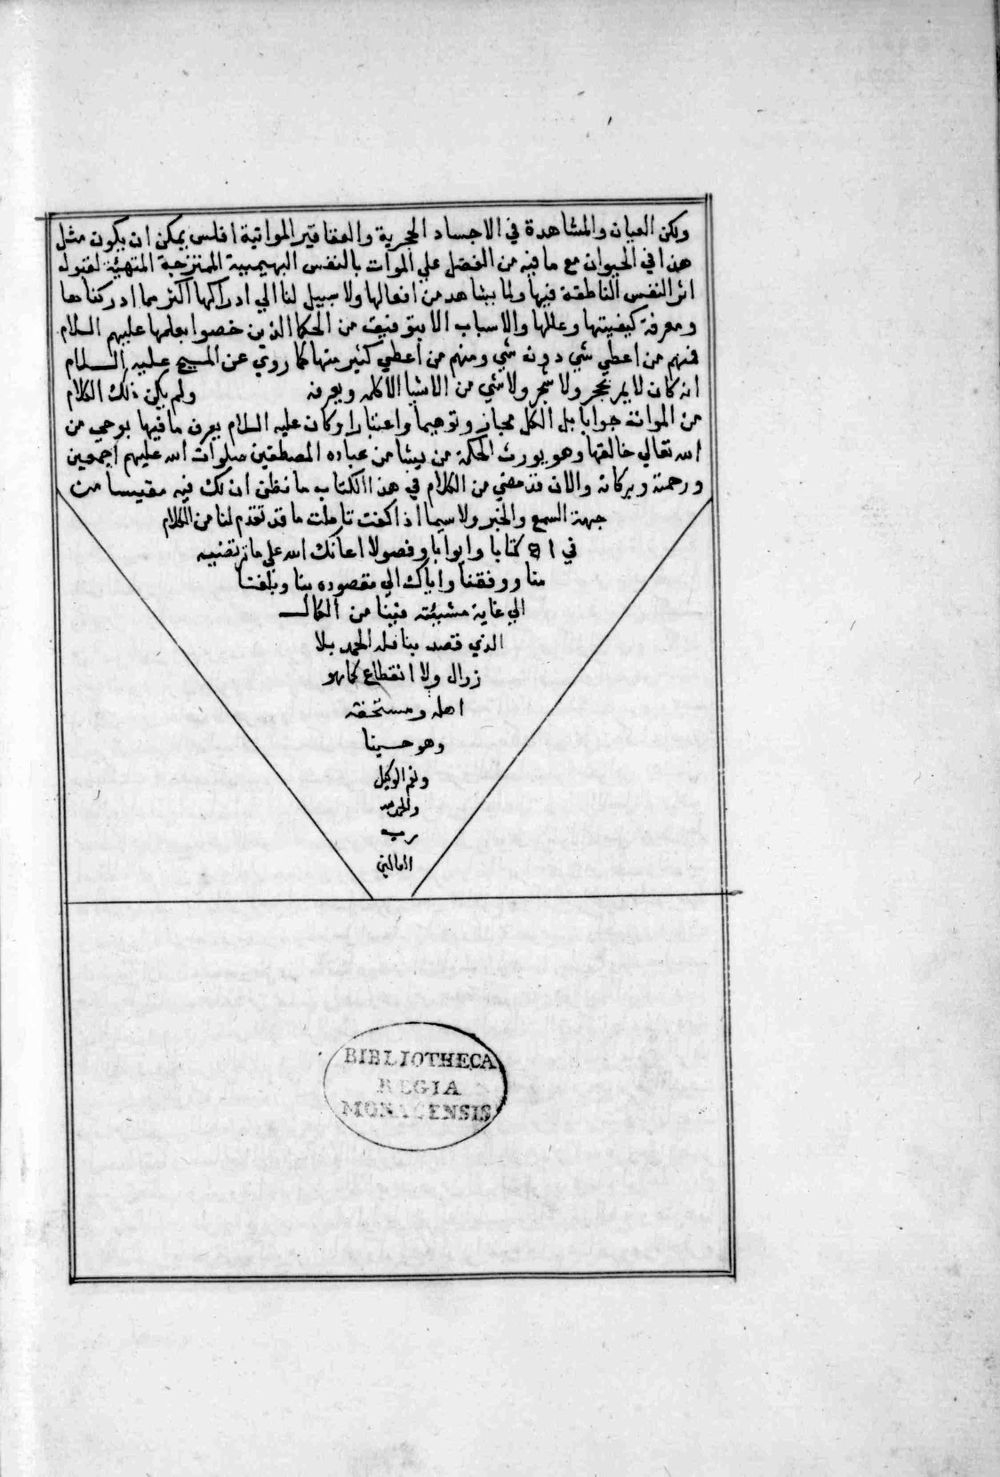 ولكن العيان والمشاهدة في الاجساد الحجرية والعقاقير المواتية افليس يمكن ان يكون مثل
هذا في الحيوان مع ما فيه من الفضل علي الموات بالنفس البهيمية الممتزجة المتهيئة لقبول
اثر النفس الناطقة فيها ولما يشاهد من افعالها ولا سبيل لنا الي ادراكها اكثر مما ادركناها
ومعرفة كيفيتها وعللها والاسباب الا بتوفيق من الحكما الذين خصوا بعلمها عليهم السلام
فمنهم من اعطي شي دون شي ومنهم من اعطي كثير منها كما روي عن المسيح عليه السلام
انه كان لا يمر بحجر ولا شجر ولا شي من الاشيا الا كلمه ويعرفه ولم يكن ذلك الكلام
من المواتة جوابا بل الكل مجاز وتوهيما واعتبارا وكان عليه السلام يعرف ما فيها بوحي من
الله تعالي خالقها وهو يورث الحكمة من يشا من عباده المصطفين صلوات الله عليهم اجمعين
ورحمته وبركاته والان قد مضي من الكلام في هذا الكتاب ما نظن ان لك فيه مقيسا من
جهة السمع والخبر ولا سيما اذا كنت تاملت ما قد تقدم لنا من الكلام
في كتابا وابوابا وفصولا اعانك الله علي ما ترتضيه
منا ووفقنا واياك الي مقصوده بنا وبلغنا
الي غاية مشيئته فينا من الكمال
الذي قصد بنا فله الحمد بلا
زوال ولا انقطاع كما هو
اهله ومستحقه
وهو حسبنا
ونعم الوكيل
والحمد لله
رب
العالمين
BIBLIOTHECA
REGIA
MONACENSIS